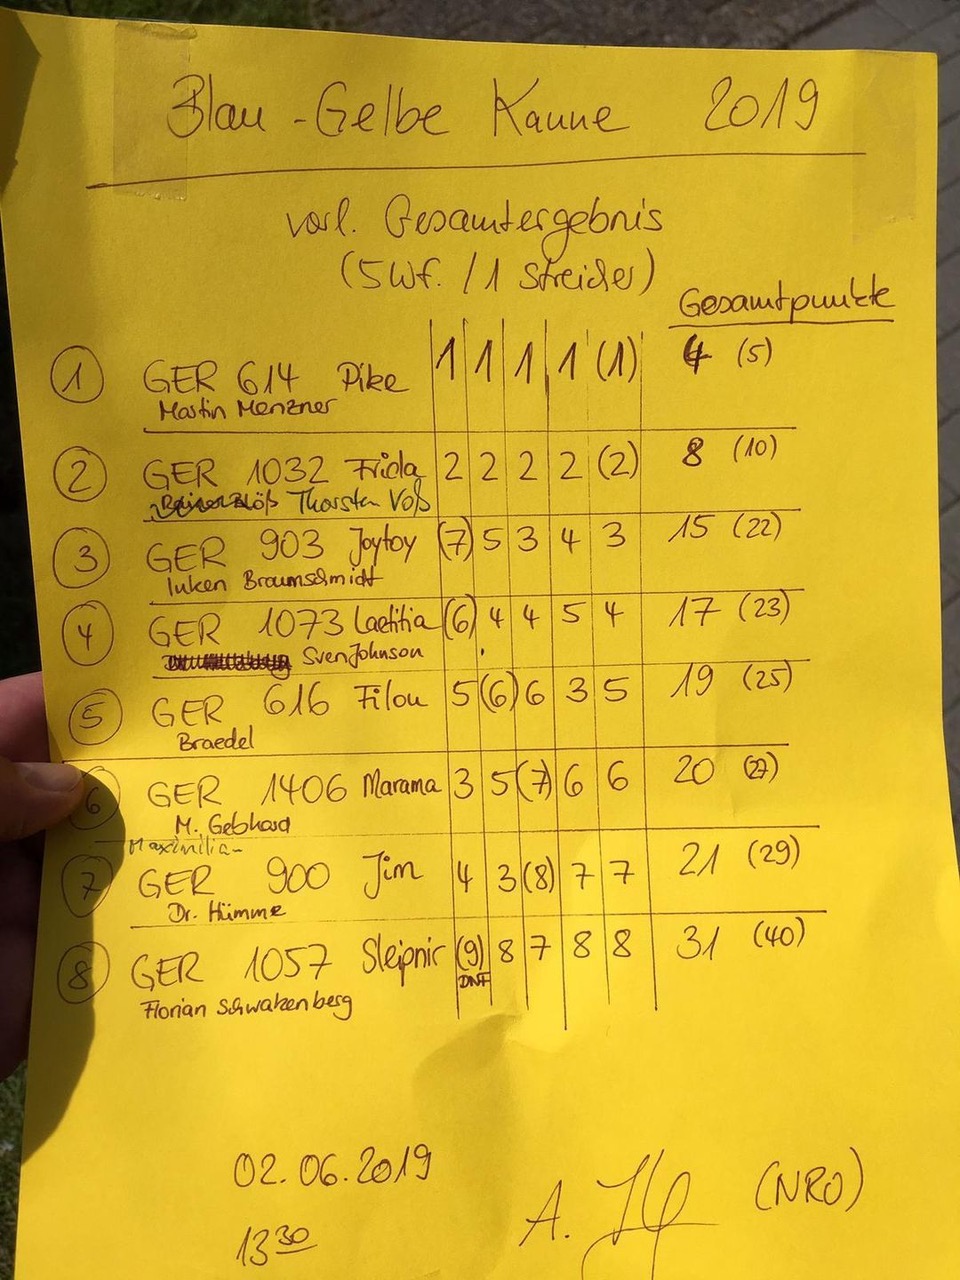 Blau-Gelbe Kanne 2019
vorl. Gesamtergebnis
(5Wf. / 1 Streicher)
Gesamtpunkte
1 GER 614 Pike 1 1 1 1 (1) 4 (5)
Martin Menzner
2 GER 1032 Frida 2 2 2 2 (2) 8 (10)
Thorsten Voß
3 GER 903 Joytoy (7) 5 3 4 3 15 (22)
Inken Braunschmidt
4 GER 1073 Laetitia (6) 4 4 5 4 17 (23)
Sven Johnson
5 GER 616 Filou 5 (6) 6 3 5 19 (25)
Braedel
6 GER 1406 Marama 3 5 (7) 6 6 20 (27)
M. Gebhard
Maximilian
7 GER 900 Jim 4 3 (8) 7 7 21 (29)
Dr. Hümme
8 GER 1057 Sleipnir (9) 8 7 8 8 31 (40)
DNF
Florian Schwarzenberg
02.06.2019
13 30
A. (NRO)